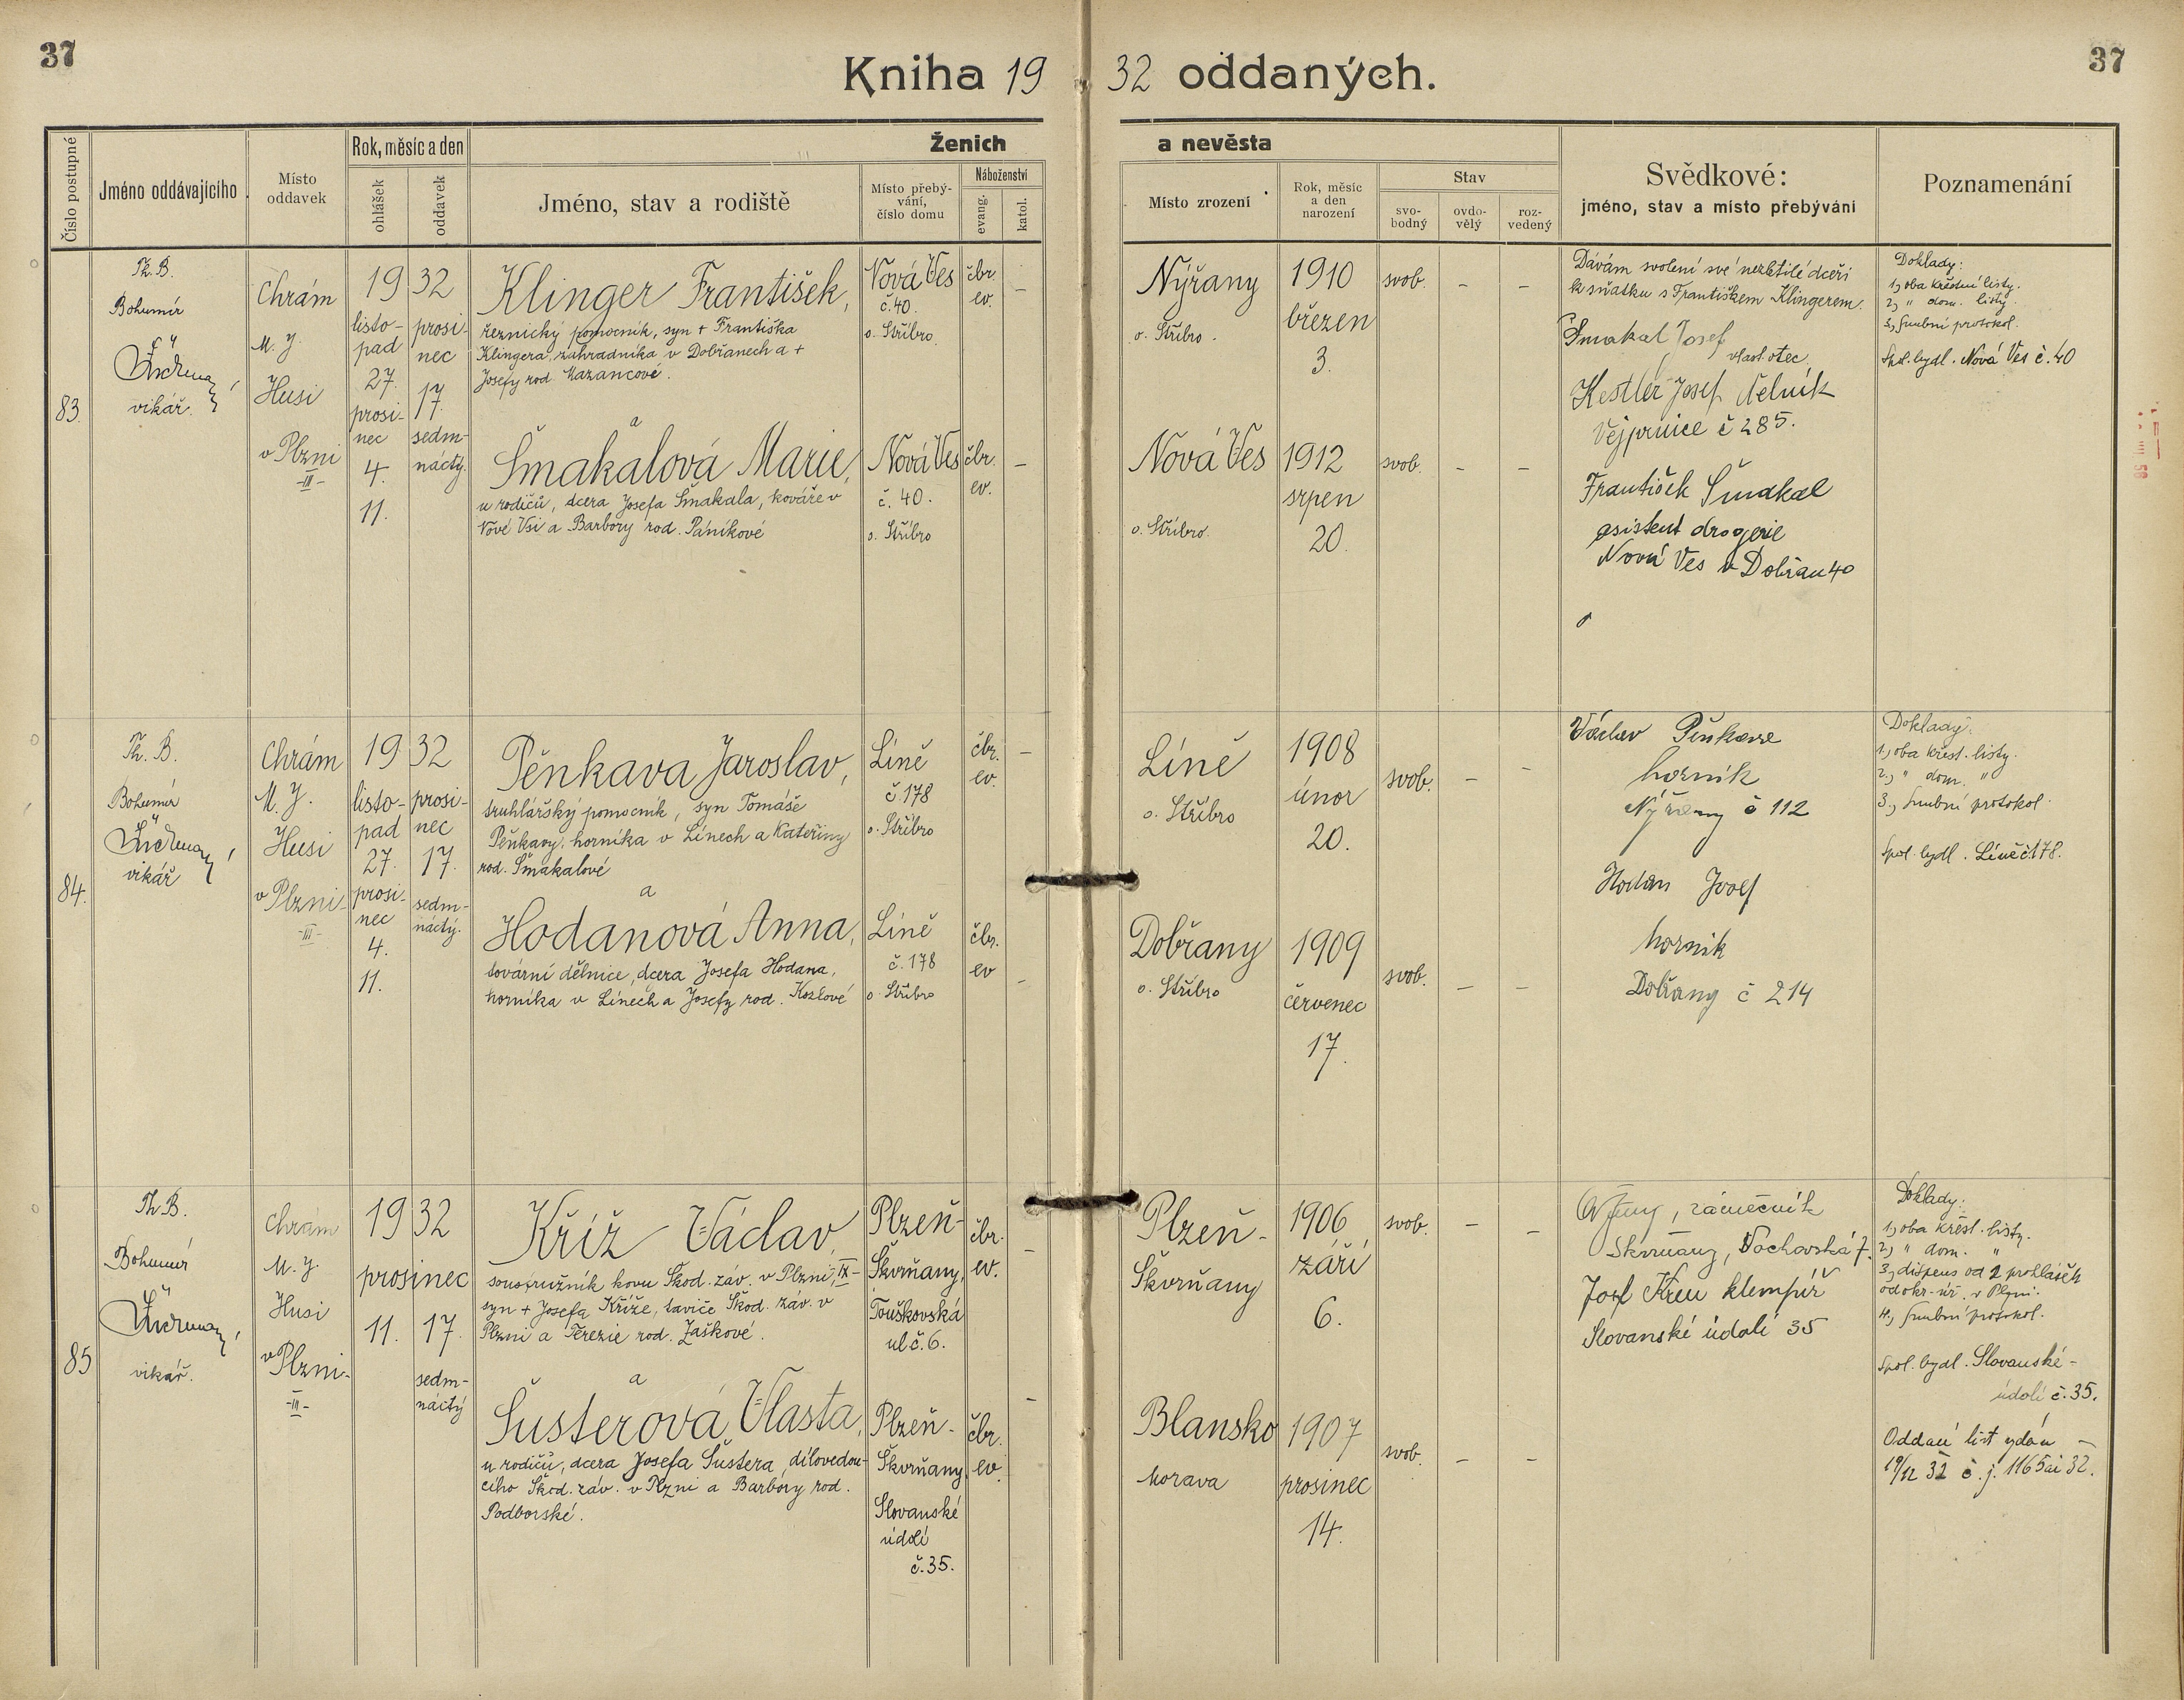 37
37
Kniha 19 32 oddaných.
Číslo postupné
Jméno oddávajícího
Místo oddavek
Rok, měsíc a den
ohlášek
oddavek
Ženich
a nevěsta
Jméno, stav a rodiště
Místo přebý-
vání,
číslo domu
Náboženství
evang.
katol.
Místo zrození
Rok, měsíc
a den
narození
Stav
svo-
bodný
ovdo-
vělý
roz-
vedený
Svědkové:
jméno, stav a místo přebývání
Poznamenání
83.
Th. B.
Bohumír
vikář.
Chrám
M. J.
Husi
v Plzni
-III-
19 32
listo-
pad
27.
prosi-
nec
4.
11.
prosi-
nec
17.
sedm-
náctý.
Klinger František,
řeznický pomocník, syn + Františka
Klingera, zahradníka v Dobřanech a +
Josefy rod. Mazancové.
Nová Ves
č. 40.
o. Stříbro
čbr.
ev.
–
Nýřany
o. Stříbro.
1910
březen
3.
svob.
–
–
a
Šmakalová Marie,
u rodičů, dcera Josefa Šmakala, kováře v
Nové Vsi a Barbory rod. Páníkové
Nová Ves
č. 40.
o. Stříbro
čbr.
ev.
–
Nová Ves
o. Stříbro.
1912
srpen
20.
svob.
–
–
Dávám svolení své nezletilé dceři
k sňatku s Františkem Klingerem.
Šmakal Josef
vlast. otec.
Kestler Josef dělník
Vejprnice č 285.
František Šmakal
asistent drogerie
Nová Ves u Dobřan 40
Doklady:
1, oba křestní listy.
2, " dom. listy.
3, smluvní protokol.
Spol. bydl. Nová Ves č. 40
84.
Th. B.
Bohumír
vikář
Chrám
M. J.
Husi
v Plzni-
-III-
19 32
listo-
pad
27.
prosi-
nec
4.
11.
prosi-
nec
17.
sedm-
náctý.
Pěnkava Jaroslav,
truhlářský pomocník, syn Tomáše
Pěnkavy, horníka v Línech a Kateřiny
rod. Šmakalové
Líně
č. 178
o. Stříbro
čbr.
ev.
–
Líně
o. Stříbro
1908
únor
20.
svob.
–
–
a
Hodanová Anna,
tovární dělnice, dcera Josefa Hodana,
horníka v Línech a Josefy rod. Kozlové
Líně
č. 178
o. Stříbro
čbr.
ev
–
Dobřany
o. Stříbro
1909
červenec
17.
svob.
–
–
Václav
horník
Nýřany č 112
Hodan Josef
horník
Dobřany č 214
Doklady:
1, oba křest. listy.
2, " dom. "
3, smluvní protokol.
Spol. bydl. Líně č. 178.
85
Th. B.
Bohumír
vikář.
Chrám
M. J.
Husi
v Plzni-
-III-
19 32
prosinec
11. 17.
sedm-
náctý
Kříž Václav,
soustružník kovu Škod. záv. v Plzni, IX-
syn + Josefa Kříže, taviče Škod. záv. v
Plzni a Terezie rod. Zaškové.
Plzeň-
Škvrňany,
Touškovská
ul. č. 6.
čbr.
ev.
–
Plzeň-
Škvrňany
1906
září
6.
svob.
–
–
a
Šusterová Vlasta,
u rodičů, dcera Josefa Šustera, dílovedou-
cího Škod. záv. v Plzni a Barbory rod.
Podborské.
Plzeň-
Škvrňany
Slovanské
údolí
č. 35.
čbr.
ev.
–
Blansko
Morava
1907
prosinec
14.
svob.
–
–
zámečník
Skvrňany, Vochovská 7.
Josef klempíř
Slovanské údolí 35
Doklady:
1, oba křest. listy.
2, " dom. "
3, dispens od 2 prohlášek
od okr. úř. v Plzni.
4, smluvní protokol.
Spol. bydl. Slovanské-
údolí č. 35.
Oddací list vydán
19/12 32 č. j. 1165 ai 32.